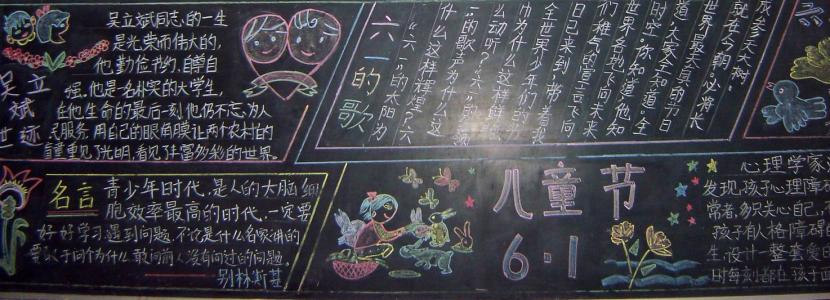 吴立斌同志的一生
是光荣而伟大的,
他勤俭节约、自尊自
强,他是名副实的大学生,
在他生命的最后一刻他仍不忘为人
民服务,用自己的眼角膜让两个农村的
童重见了光明,看见了丰富多彩的世界。
吴立斌
世迹
六一的歌
成参天大树.
就在今朝.必将长
世界最天真的节日
道.大家全知道.全
时空.你知道.他知
世界各地飞向未来
们稚气的宣言飞向
日已来到.带着我
全世界少年们的节
巾为什么这样鲜
么动听?
一的歌声为什么这
什么这样辉煌?六
"六一"的太阳为
名言
青少年时代,是人的大脑细
胞效率最高的时代,一定要
好好学习遇到问题,不论是什么名家讲的
要敢于问个为什么,敢问前人没有问过的问题。
别林斯基
儿童节
6·1
心理学家
发现,孩子心理障
常者,多只关心自己,
孩子有人格障碍的
生,设计一整套爱
时每刻都在孩子面